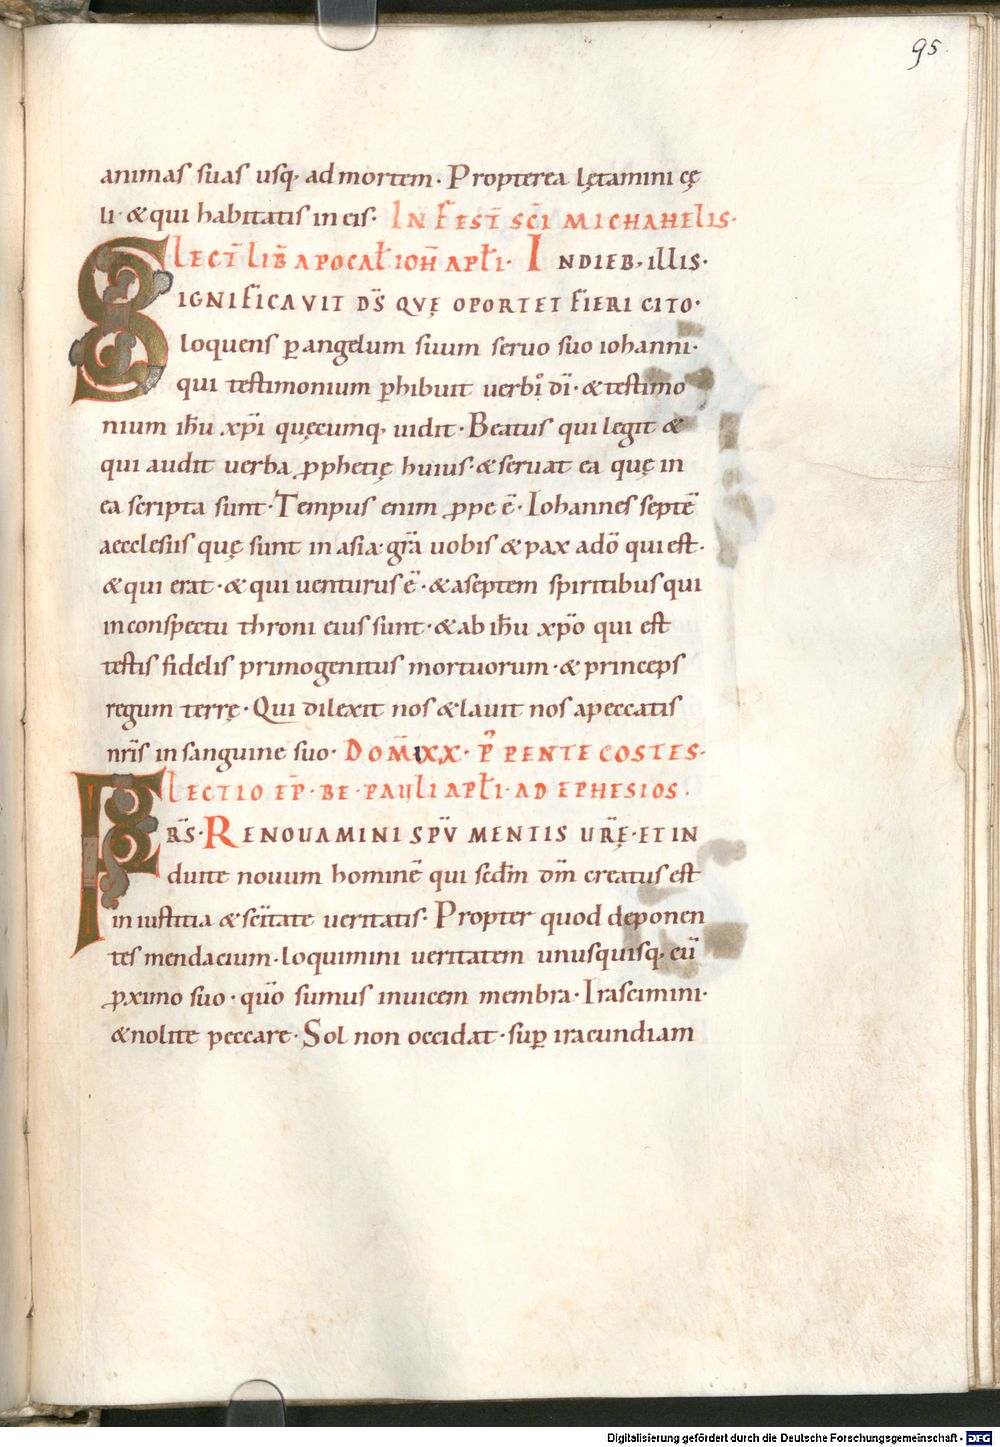 95
animas suas usq; ad mortem. Propterea lętamini cę
li. & qui habitatis in eis. IN FEST̄ SC̄I MICHAHELIS.
LECT̄ LIB̄ APOCAL̄ IOH̄ APL̄I. IN DIEB; ILLIS.
SIGNIFICAVIT DS̄ QVĘ OPORTET FIERI CITO.
loquens ꝑ angelum suum seruo suo iohanni.
qui testimonium ꝑhibuit uerbo dī. & testimo
nium ih̄u xp̄i quęcumq; uidit. Beatus qui legit &
qui audit uerba ꝓphetię huius. & seruat ea quę in
ea scripta sunt. Tempus enim ꝓpe ē. Iohannes septē
aecclesiis quę sunt in asia. grā uobis & pax a dō qui est.
& qui erat. & qui uenturus ē. & a septem spiritibus qui
in conspectu throni eius sunt. & ab ih̄u xp̄o qui est
testis fidelis primogenitus mortuorum. & princeps
regum terrę. Qui dilexit nos & lauit nos a peccatis
nr̄is in sanguine suo. DOM̄ XX. P̄ PENTECOSTES.
LECTIO EP̄. BE. PAULI APL̄I. AD EPHESIOS.
FRS̄. RENOUAMINI SPŪ MENTIS UR̄Ę. ET IN
duite nouum hominē qui scdm̄ dm̄ creatus est
in iustitia & sc̄itate ueritatis. Propter quod deponen
tes mendacium. loquimini ueritatem unusquisq; cū
ꝓximo suo. quō sumus inuicem membra. Irascimini.
& nolite peccare. Sol non occidat. suꝑ iracundiam
Digitalisierung gefördert durch die Deutsche Forschungsgemeinschaft - DFG